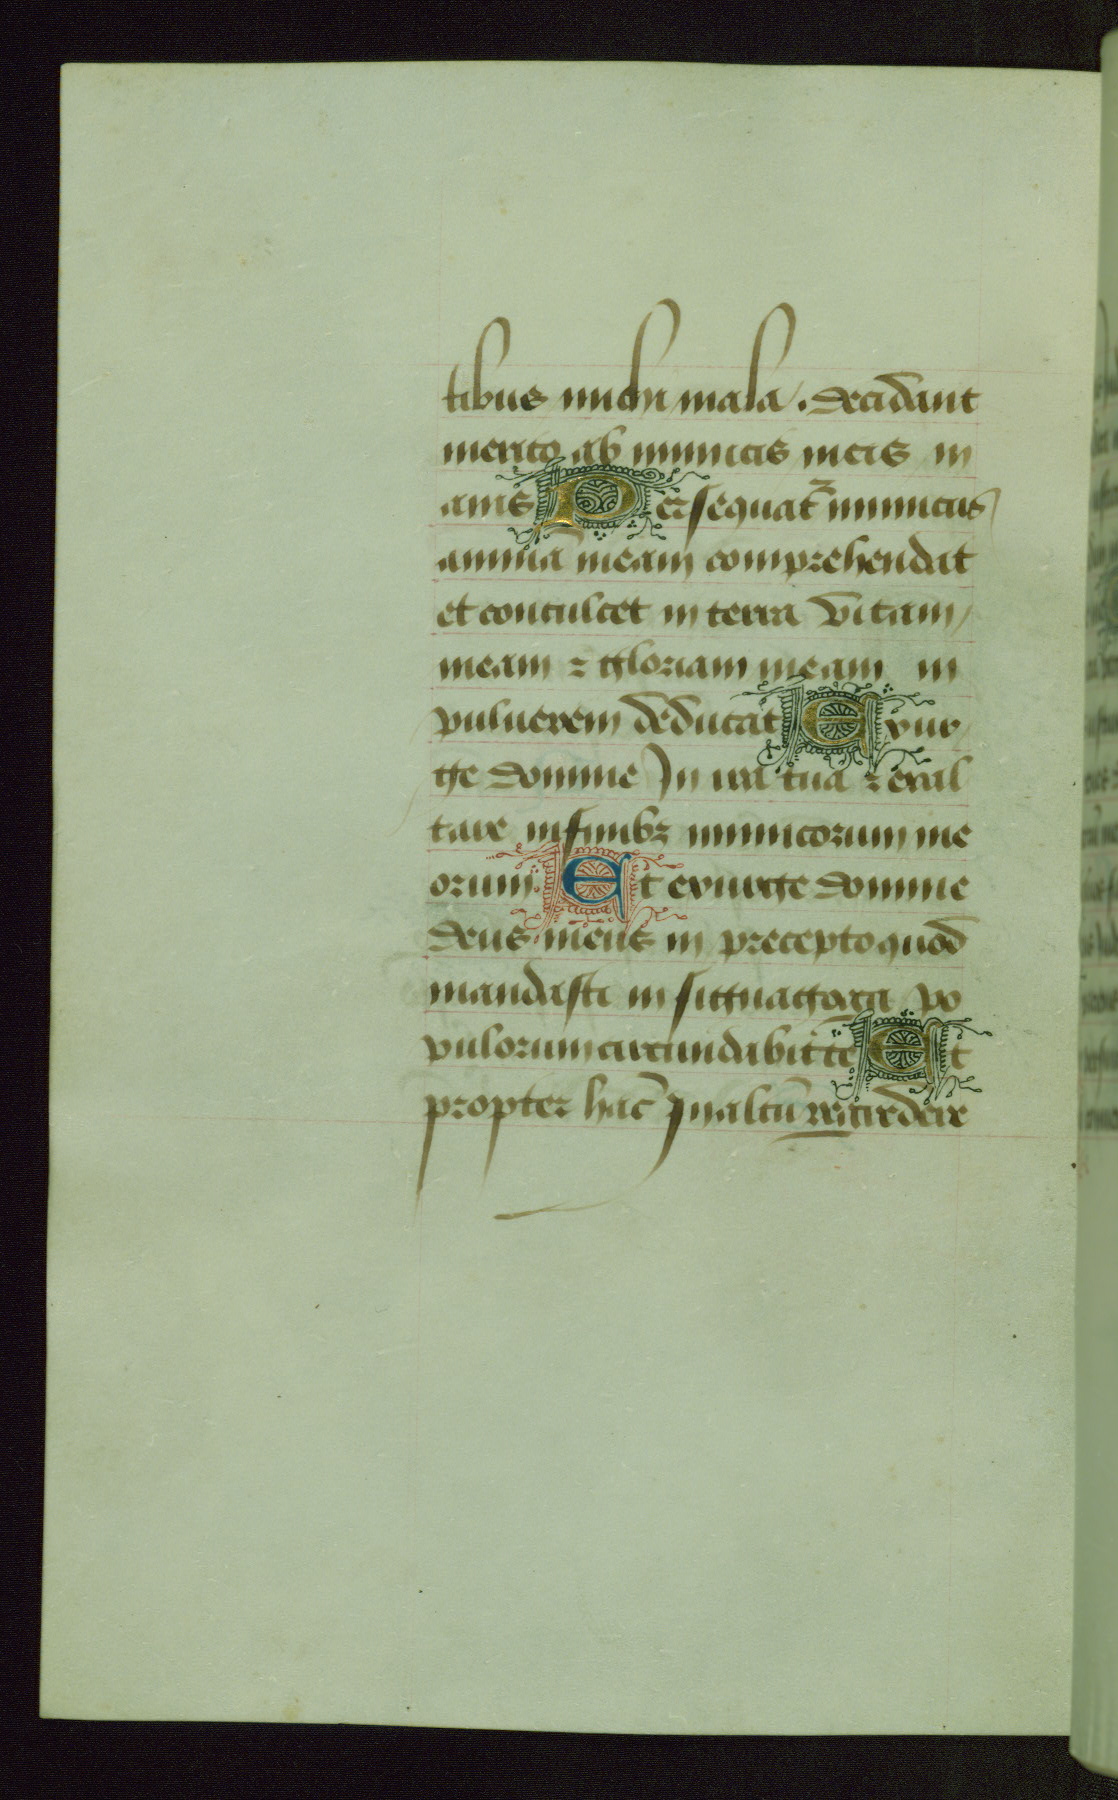 tibus michi mala. decidant
merito ab inimicis meis in
anis Persequat᷑ inimicus
animā meam comprehendat
et conculcet in terra vitam
meam ⁊ gloriam meam in
puluerem deducat Exur
ge domine In ira tua ⁊ exal
tare in finibꝫ inimicorum me
orum Et exurge domine
deus meus in precepto quod
mandasti in
pulorum circundabit te Et
propter hāc In altū